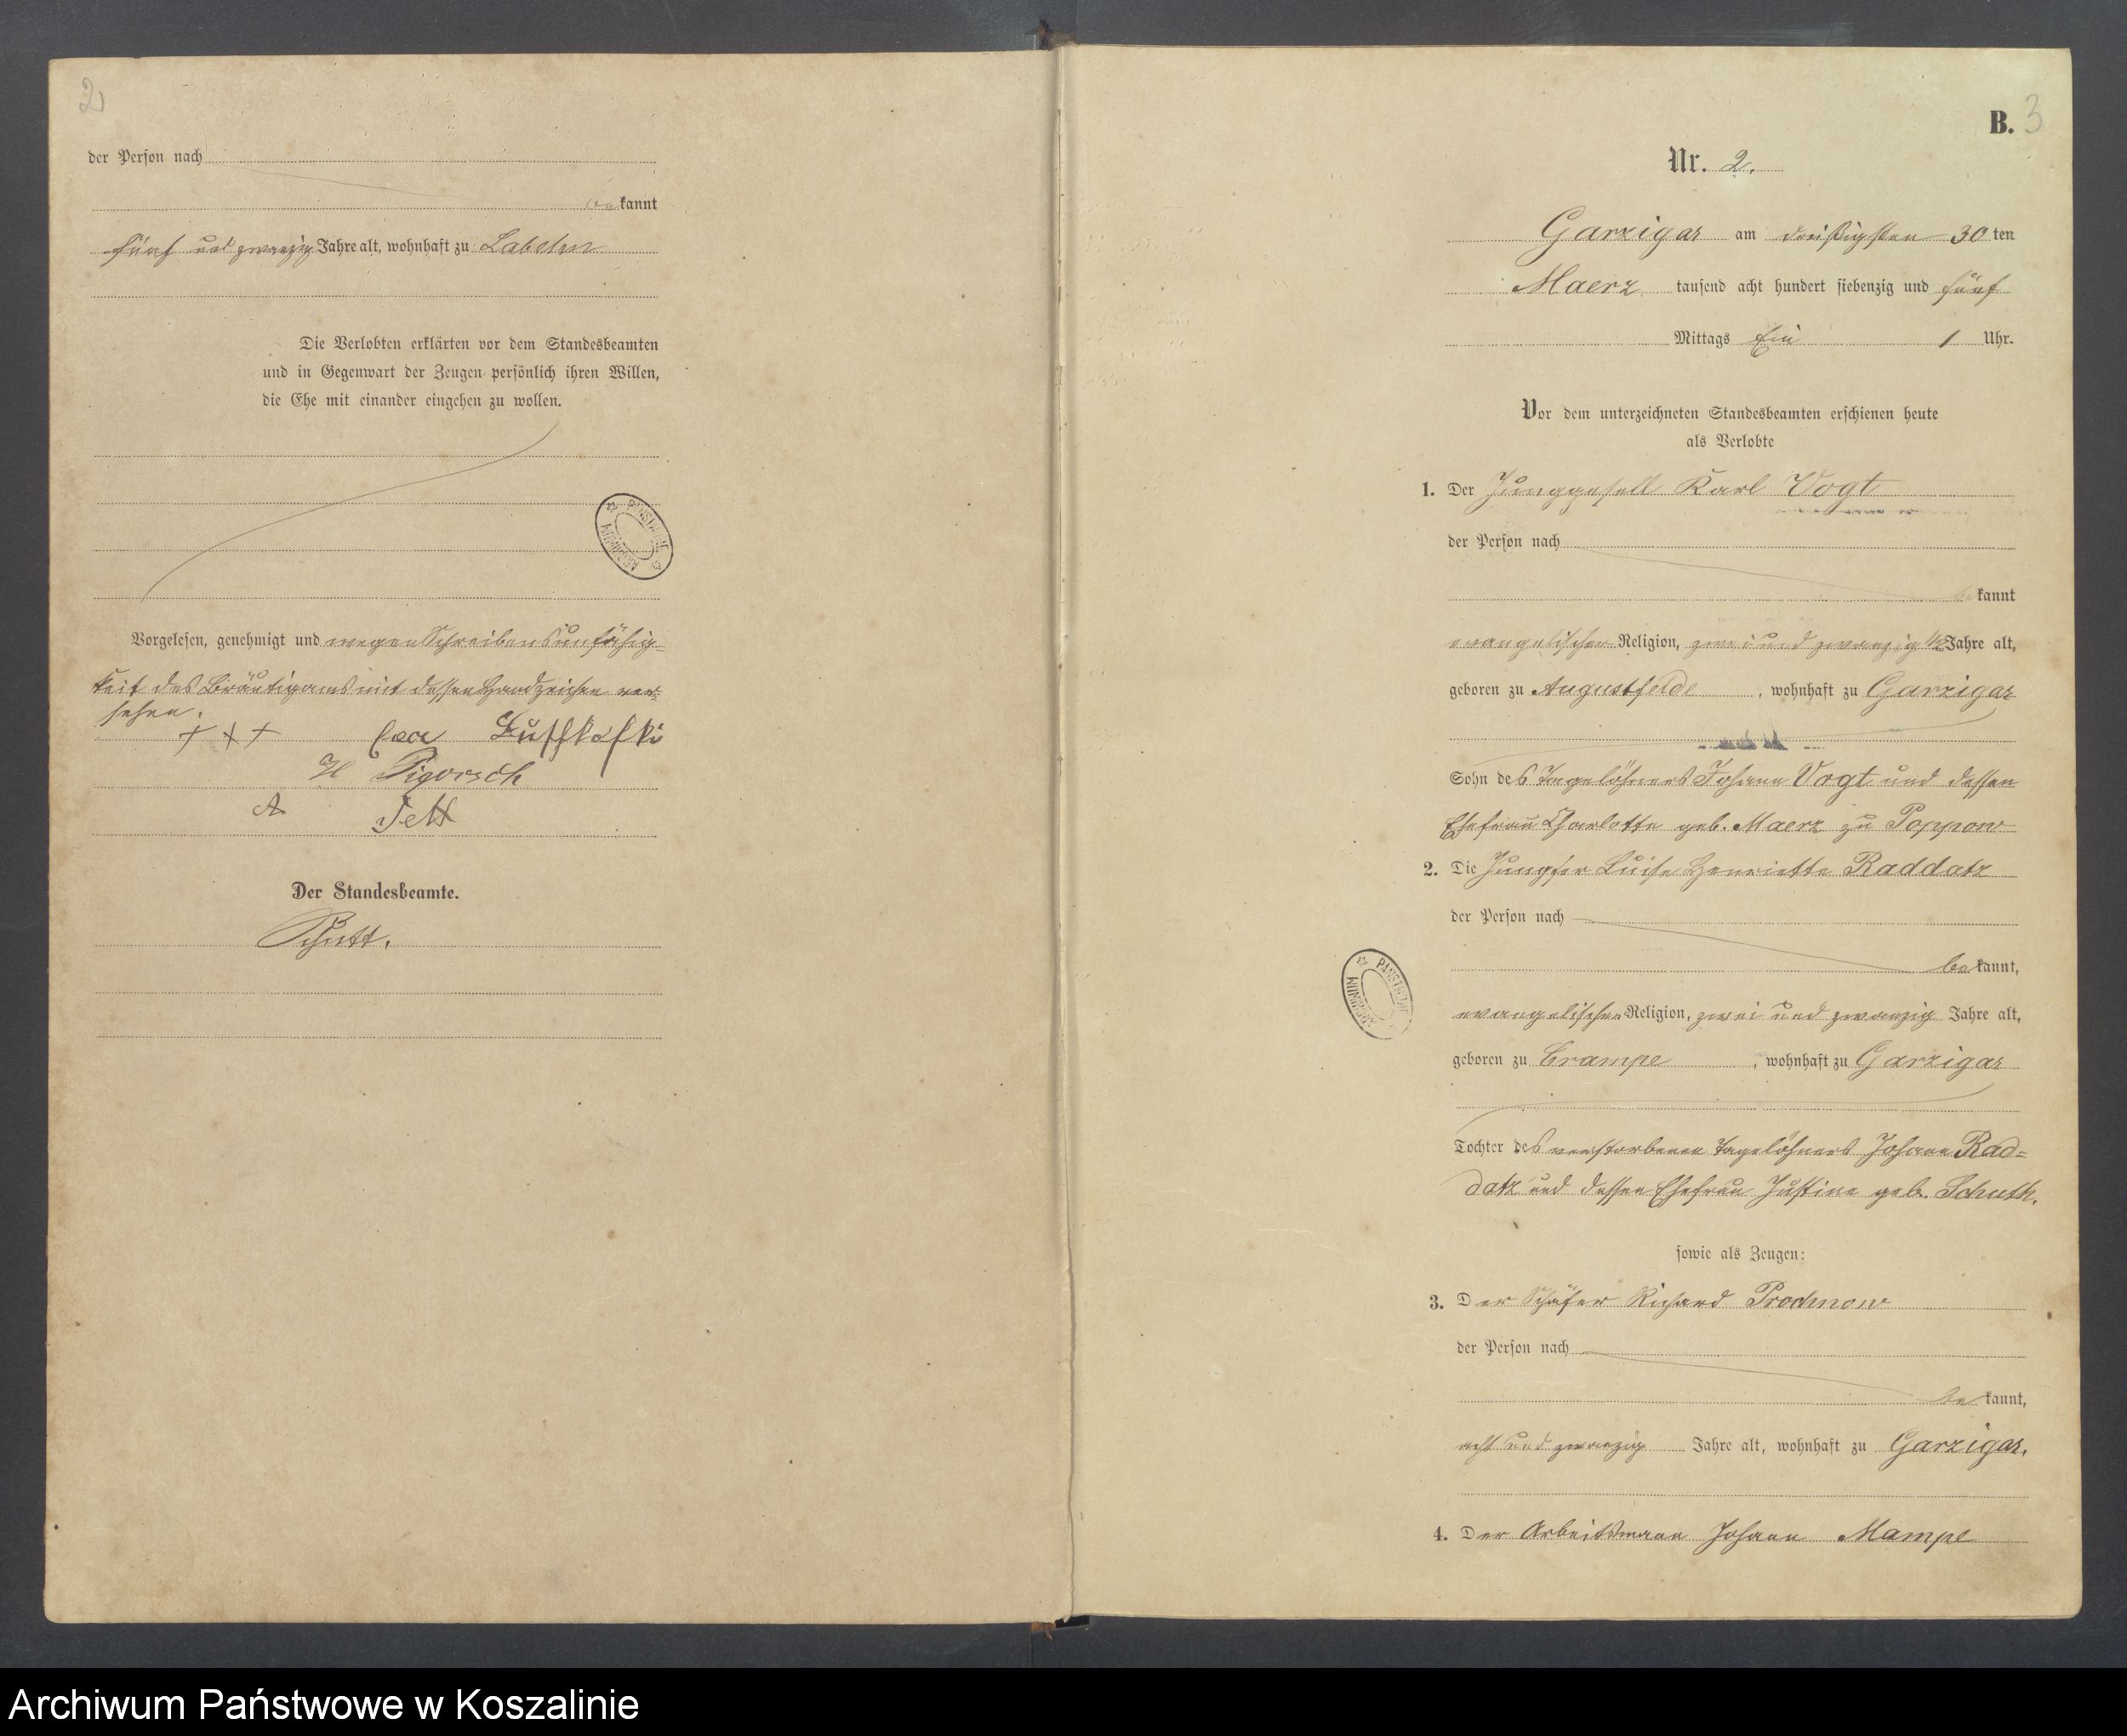 2
der Person nach
bekannt
fünf und zwanzig Jahre alt, wohnhaft zu Labehn
Die Verlobten erklärten vor dem Standesbeamten
und in Gegenwart der Zeugen persönlich ihren Willen,
die Ehe mit einander eingehen zu wollen.
Vorgelesen, genehmigt und wegen Schreibensunfähig-
keit des Bräutigams mit dessen Handzeichen ver-
sehen.
+++
H Pigorsch
A Tett
Der Standesbeamte.
B. 3
Nr. 2.
Garzigar am dreißigsten 30 ten
Maerz tausend acht hundert siebenzig und fünf
Mittags Ein 1 Uhr.
Vor dem unterzeichneten Standesbeamten erschienen heute
als Verlobte
1. Der Junggesell Karl Vogt
der Person nach
bekannt
evangelischer Religion, zwei und zwanzig 1/2 Jahre alt,
geboren zu Augustfelde, wohnhaft zu Garzigar
Sohn des Tagelöhners Johann Vogt und dessen
Ehefrau Charlotte geb. Maerz zu Poppow
2. Die Jungfer Luise Henriette Raddatz
der Person nach
bekannt,
evangelischer Religion, zwei und zwanzig Jahre alt,
geboren zu Crampe, wohnhaft zu Garzigar
Tochter des verstorbenen Tagelöhners Johann Rad-
datz und dessen Ehefrau Justine geb. Schuth.
sowie als Zeugen:
3. Der Schäfer Richard Prochnow
der Person nach
bekannt,
acht und zwanzig Jahre alt, wohnhaft zu Garzigar.
4. Der Arbeitsmann Johann Mampe
Archiwum Państwowe w Koszalinie